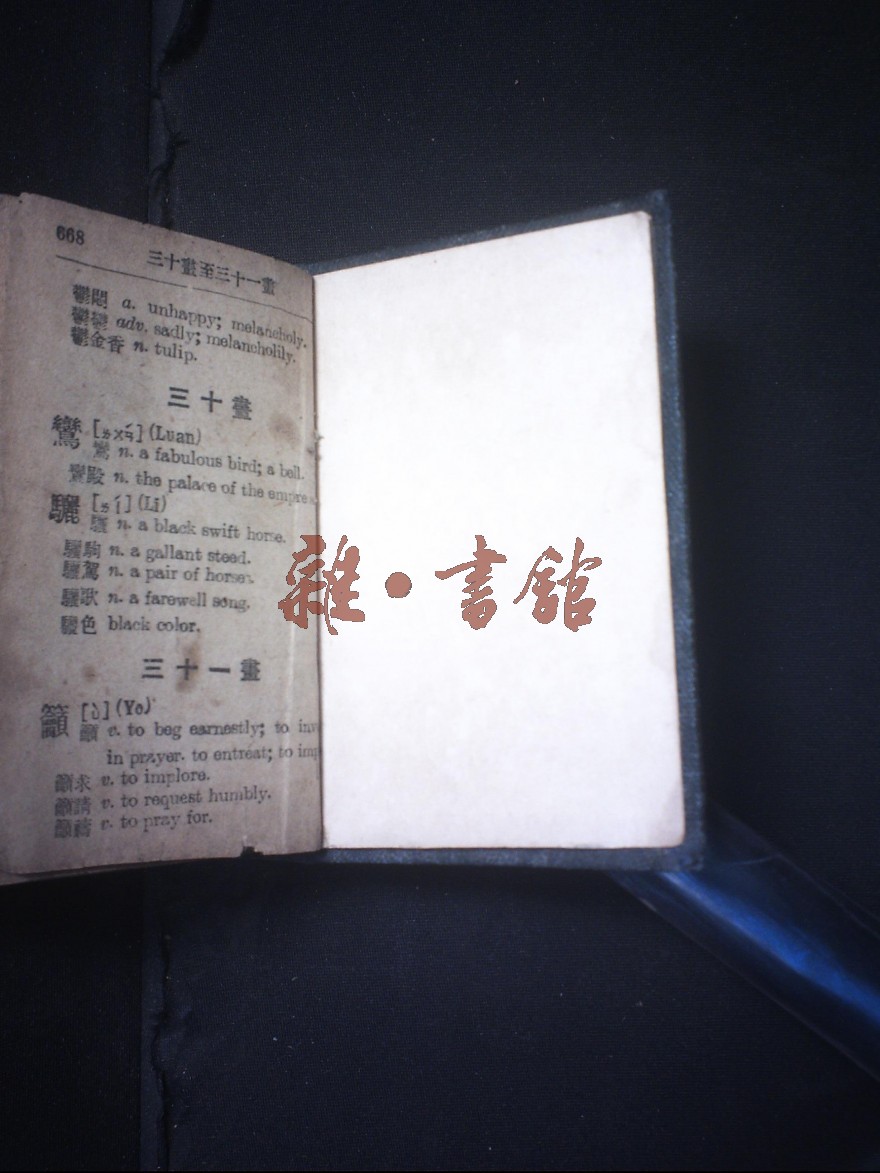 668
三十畫至三十一畫
鬱悶 a. unhappy; melancholy.
鬱鬱 adv. sadly; melancholily.
鬱金香 n. tulip.
三十畫
鸞 [ㄌㄨㄢˊ] (Luan)
鸞 n. a fabulous bird; a bell.
鸞殿 n. the palace of the empres
驪 [ㄌㄧˊ] (Li)
驪 n. a black swift horse.
驪駒 n. a gallant steed.
驪駕 n. a pair of horses.
驪歌 n. a farewell song.
驪色 black color.
三十一畫
籲 [ㄩˋ] (Yo)
籲 v. to beg earnestly; to inv
in prayer. to entreat; to imp
籲求 v. to implore.
籲請 v. to request humbly.
籲禱 v. to pray for.
雜·書館